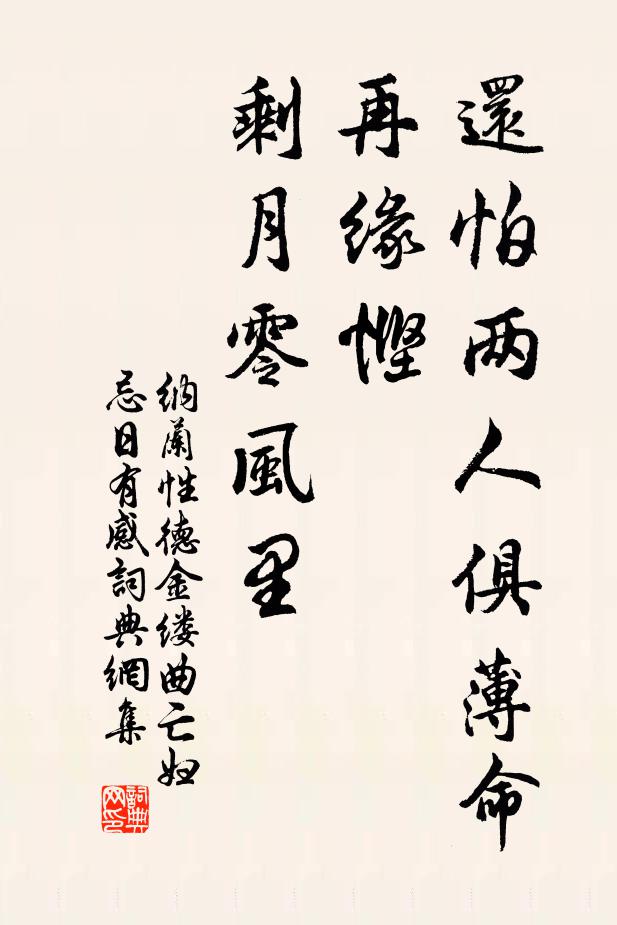 還怕两人俱薄命
再緣慳
剩月零風里
納蘭性德金缕曲亡妇
忌日有感詞典網集
詞典
网印